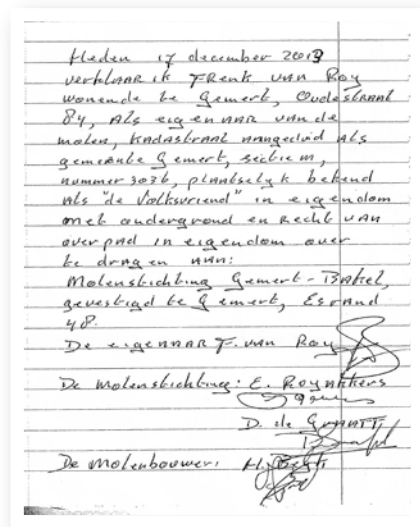 Heden 17 december 2013
verklaar ik Frenk van Roy
wonende te Gemert, Oudestraat
84, Als eigenaar van de
molen, kadastraal aangeduid als
gemeente Gemert, sectie M,
nummer 3036, plaatselyk bekend
als "de Volksvriend" in eigendom
met ondergrond en Recht van
overpad in eigendom over
te dragen aan:
Molenstichting Gemert-Bakel,
gevestigd te Gemert, Esrand
48.
De eigenaar F. van Roy
De molenstichting: E. Roynakkers
D. de
De Molenbouwer: